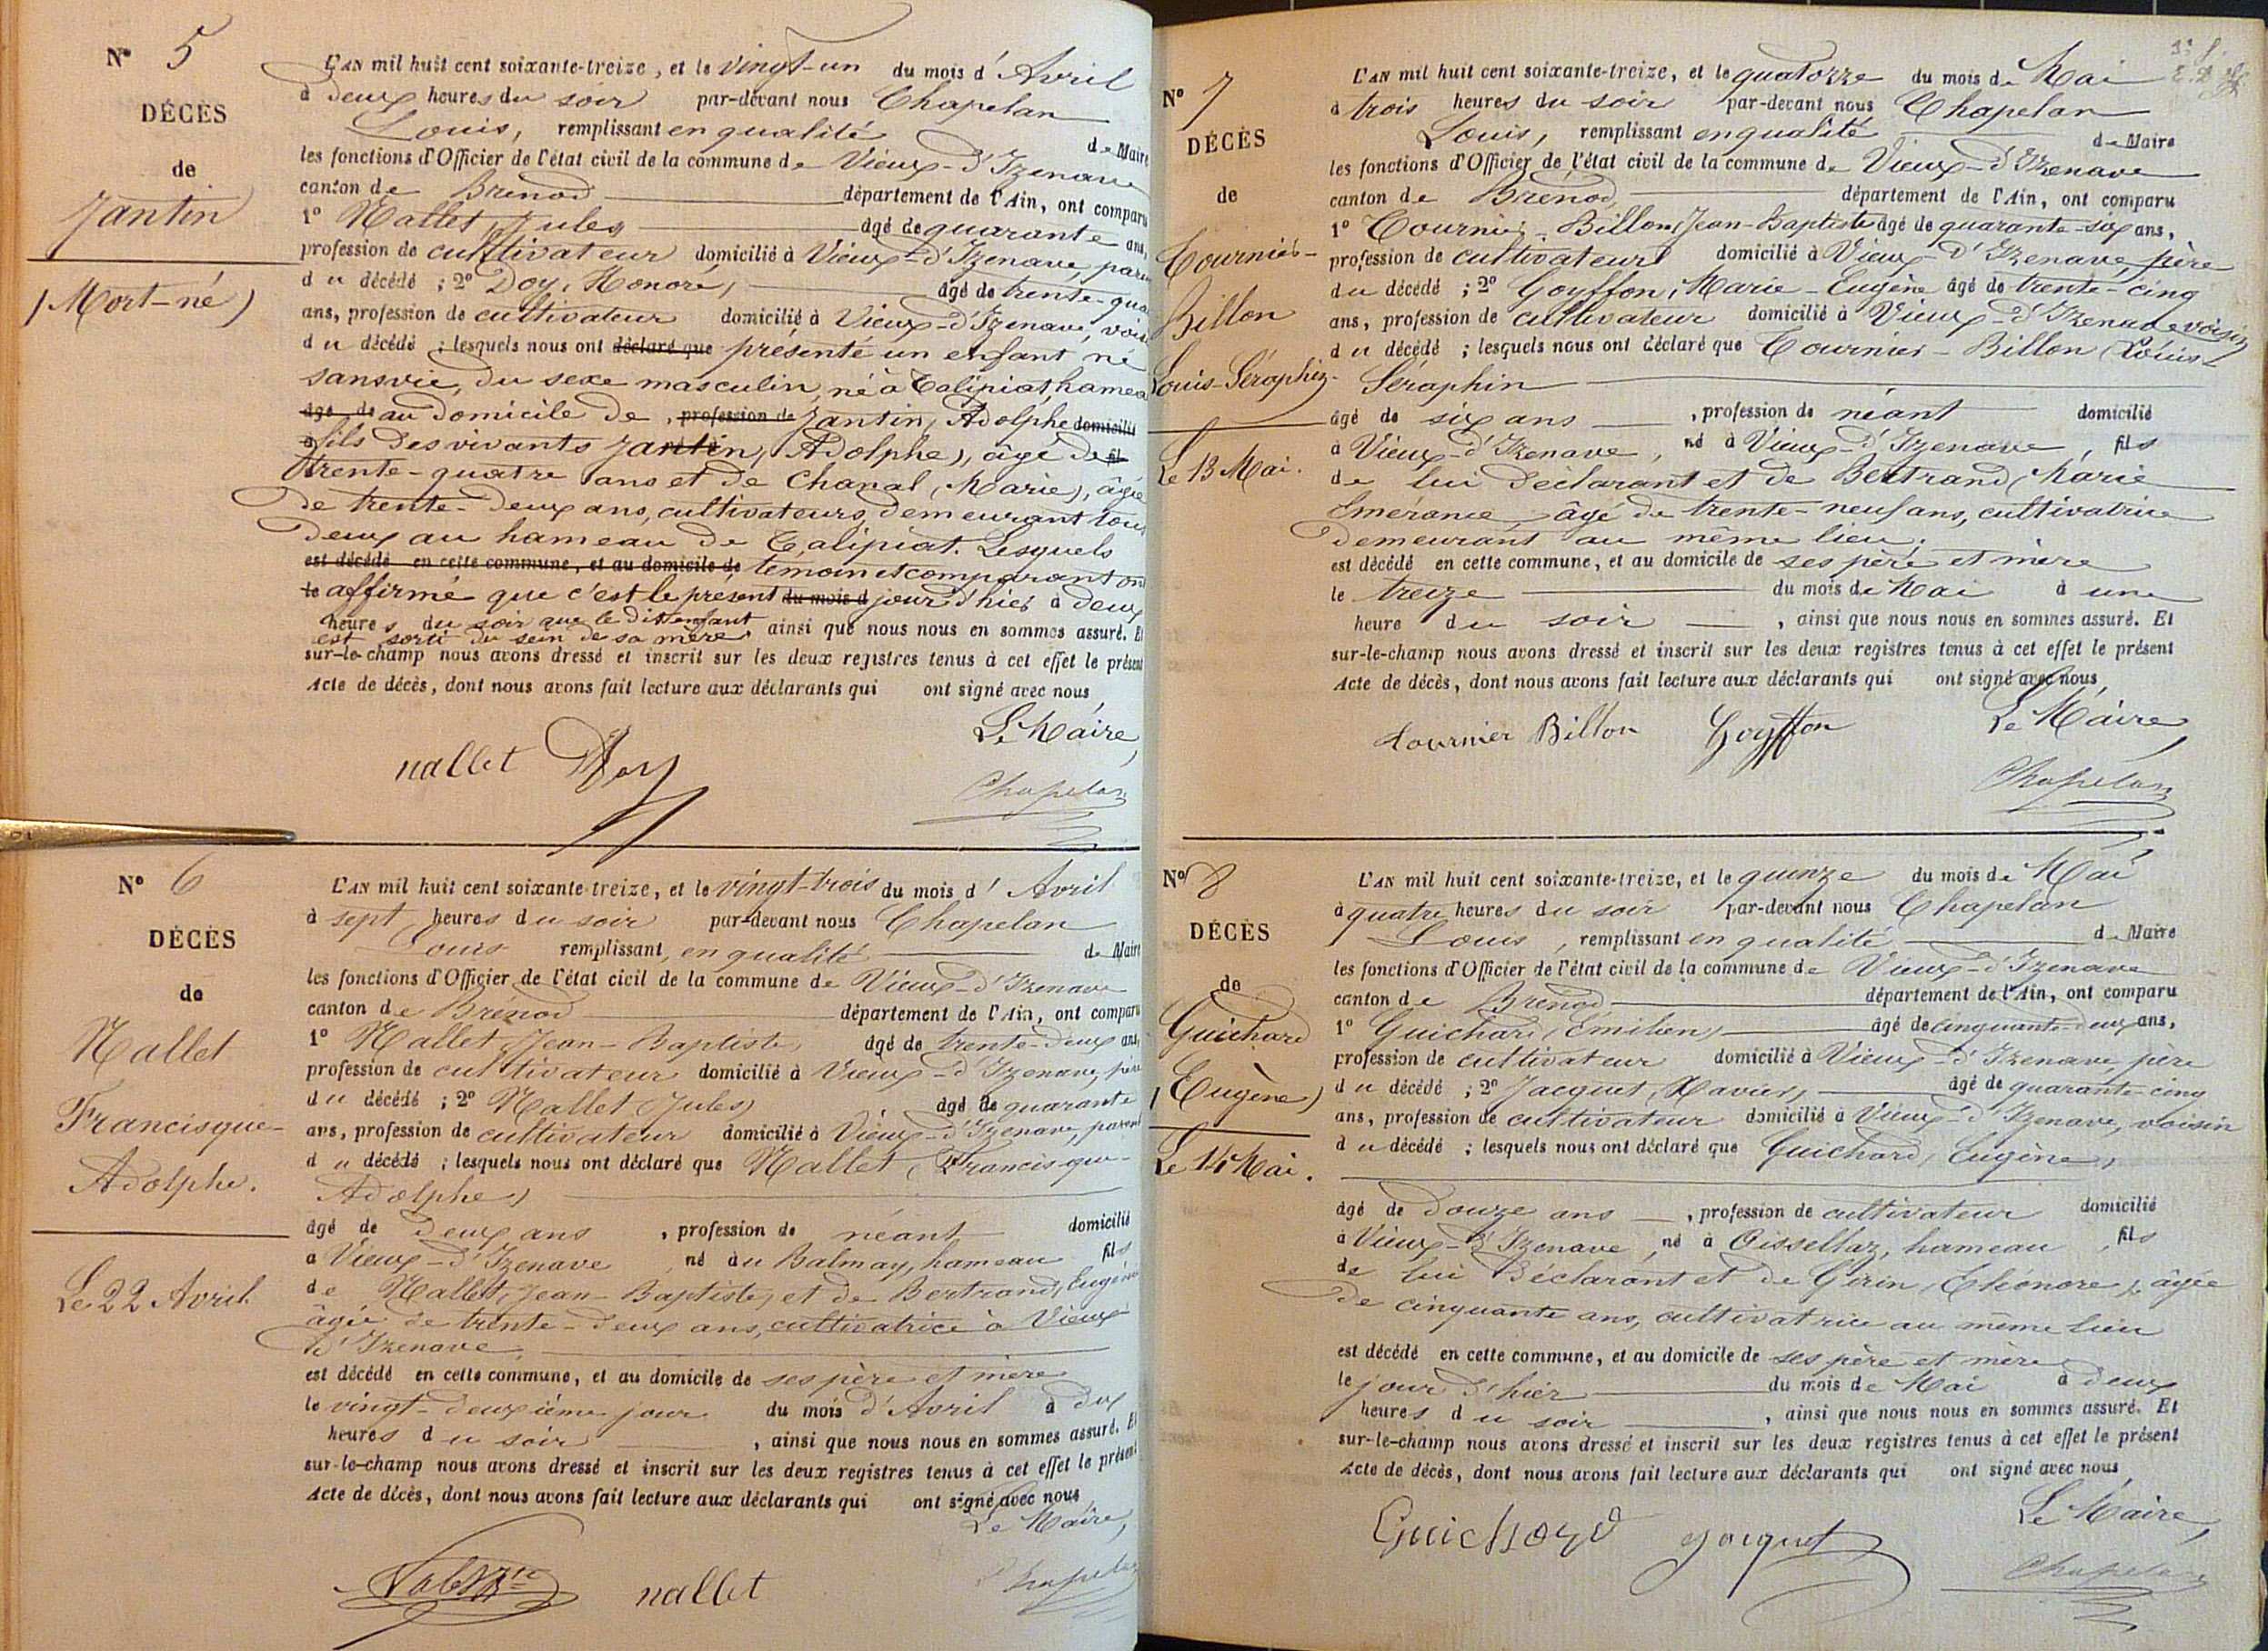 N° 5
DÉCÈS
de
Jantin
(Mort-né)
L'AN mil huit cent soixante-treize, et le vingt-un du mois d'Avril
à deux heures du soir par-devant nous Chapelan
Louis, remplissant en qualité de Maire
les fonctions d'Officier de l'état civil de la commune de Vieux-d'Izenave
canton de Brénod département de l'Ain, ont comparu
1° Nallet, Jules âgé de quarante ans,
profession de cultivateur domicilié à Vieux-d'Izenave, paren
du décédé ; 2° Doy, Honoré, âgé de trente-qua
ans, profession de cultivateur domicilié à Vieux-d'Izenave, voisi
du décédé ; lesquels nous ont déclaré que présenté un enfant né
sans vie, du sexe masculin, né à Talipiat, hamea
âgé de au domicile de , profession de Jantin, Adolphe domicilié
à fils des vivants Jantin, (Adolphe), âgé de fil
trente-quatre ans et de Chanal, (Marie), âgée
de trente-deux ans, cultivateurs, demeurant tous
deux au hameau de Talipiat. Lesquels
est décédé en cette commune, et au domicile de témoin et comparant ont
le affirmé que c'est le présent du mois d jour d'hier à deux
heures du soir que le dit enfant
est sorti du sein de sa mère. ainsi que nous nous en sommes assuré. Et
sur-le-champ nous avons dressé et inscrit sur les deux registres tenus à cet effet le présent
Acte de décès, dont nous avons fait lecture aux déclarants qui ont signé avec nous
Le Maire,
nallet Doy
Chapelan
N° 6
DÉCÈS
de
Nallet
Francisque-
Adolphe.
Le 22 Avril
L'AN mil huit cent soixante-treize, et le vingt-trois du mois d'Avril
à sept heures du soir par-devant nous Chapelan
Louis remplissant, en qualité de Maire
les fonctions d'Officier de l'état civil de la commune de Vieux-d'Izenave
canton de Brénod département de l'Ain, ont comparu
1° Nallet, Jean-Baptiste, âgé de trente-deux ans,
profession de cultivateur domicilié à Vieux-d'Izenave, père
du décédé ; 2° Nallet (Jules) âgé de quarante
ans, profession de cultivateur domicilié à Vieux-d'Izenave, parent
du décédé ; lesquels nous ont déclaré que Nallet (Francisque-
Adolphe)
âgé de deux ans , profession de néant domicilié
à Vieux-d'Izenave né au Balmay, hameau fils
de Nallet, Jean-Baptiste, et de Bertrand, Eugénie
âgée de trente-deux ans, cultivatrice à Vieux-
d'Izenave,
est décédé en cette commune, et au domicile de ses père et mère
le vingt-deuxième jour du mois d'Avril à dix
heures du soir , ainsi que nous nous en sommes assuré. Et
sur-le-champ nous avons dressé et inscrit sur les deux registres tenus à cet effet le présent
Acte de décès, dont nous avons fait lecture aux déclarants qui ont signé avec nous
Le Maire,
nallet Chapelan
N° 7
DÉCÈS
de
Tournier-
Billon
Louis-Séraphin.
Le 13 Mai.
L'AN mil huit cent soixante-treize, et le quatorze du mois de Mai
à trois heures du soir par-devant nous Chapelan
Louis, remplissant en qualité de Maire
les fonctions d'Officier de l'état civil de la commune de Vieux-d'Izenave
canton de Brénod, département de l'Ain, ont comparu
1° Tournier-Billon, Jean-Baptiste âgé de quarante-six ans,
profession de cultivateur domicilié à Vieux-d'Izenave, père
du décédé ; 2° Goyffon, Marie-Eugène âgé de trente-cinq
ans, profession de cultivateur domicilié à Vieux-d'Izenave voisin
du décédé ; lesquels nous ont déclaré que Tournier-Billon (Louis-
Séraphin
âgé de six ans , profession de néant domicilié
à Vieux-d'Izenave, né à Vieux-d'Izenave, fils
de lui déclarant et de Bertrand, Marie
Émérance âgé de trente-neuf ans, cultivatrice
demeurant au même lieu.
est décédé en cette commune, et au domicile de ses père et mère
le treize du mois de Mai à une
heure du soir , ainsi que nous nous en sommes assuré. Et
sur-le-champ nous avons dressé et inscrit sur les deux registres tenus à cet effet le présent
Acte de décès, dont nous avons fait lecture aux déclarants qui ont signé avec nous
Le Maire,
tournier Billon Goyffon
Chapelan
N° 8
DÉCÈS
de
Guichard
(Eugène)
Le 14 Mai.
L'AN mil huit cent soixante-treize, et le quinze du mois de Mai
à quatre heures du soir par-devant nous Chapelan
Louis, remplissant en qualité de Maire
les fonctions d'Officier de l'état civil de la commune de Vieux-d'Izenave
canton de Brénod département de l'Ain, ont comparu
1° Guichard (Émilien) âgé de cinquante-deux ans,
profession de cultivateur domicilié à Vieux-d'Izenave, père
du décédé ; 2° Jacquet, Xavier, âgé de quarante-cinq
ans, profession de cultivateur domicilié à Vieux-d'Izenave, voisin
du décédé ; lesquels nous ont déclaré que Guichard, Eugène,
âgé de douze ans , profession de cultivateur domicilié
à Vieux-d'Izenave, né à Oisselaz, hameau , fils
de lui déclarant et de Girin, Éléonore, âgée
de cinquante ans, cultivatrice au même lieu
est décédé en cette commune, et au domicile de ses père et mère
le jour d'hier du mois de Mai à deux
heures du soir , ainsi que nous nous en sommes assuré. Et
sur-le-champ nous avons dressé et inscrit sur les deux registres tenus à cet effet le présent
Acte de décès, dont nous avons fait lecture aux déclarants qui ont signé avec nous
Le Maire,
Guichard jacquet
Chapelan